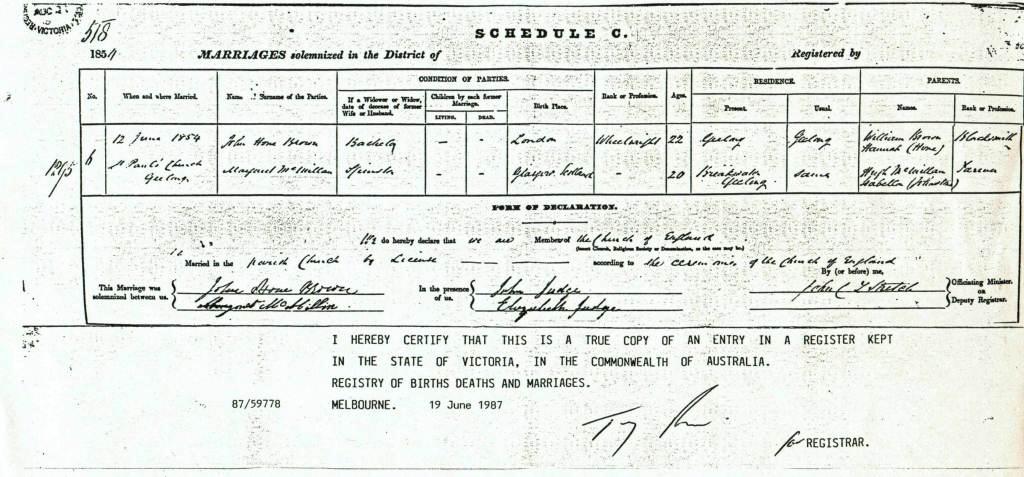 AUG 2
VICTORIA
518
SCHEDULE C.
1854 MARRIAGES solemnized in the District of Registered by
CONDITION OF PARTIES. RESIDENCE. PARENTS.
No. When and where Married. Name Surname of the Parties. If a Widower or Widow, date of decease of former Wife or Husband. Children by each former Marriage. LIVING. DEAD. Birth Place. Rank or Profession. Ages. Present. Usual. Names. Rank or Profession.
12 June 1854 John Hone Brown Bachelor – – London Wheelwright 22 Geelong Geelong William Brown Blacksmith
6 Hannah (Hone)
St Pauls Church Margaret McMillan Spinster – – Glasgow Scotland – 20 Breakwater same Hugh McMillan Farmer
Geelong Geelong Isabella (Johnston)
FORM OF DECLARATION.
We do hereby declare that we are Members of the Church of England
(Insert Church, Religious Society or Denomination, as the case may be.)
Married in the parish Church by License according to the ceremonies of the Church of England
By (or before) me,
This Marriage was solemnized between us. John Hone Brown In the presence of us. John Judge Officiating Minister or Deputy Registrar.
Margaret Elizabeth Judge
I HEREBY CERTIFY THAT THIS IS A TRUE COPY OF AN ENTRY IN A REGISTER KEPT
IN THE STATE OF VICTORIA, IN THE COMMONWEALTH OF AUSTRALIA.
REGISTRY OF BIRTHS DEATHS AND MARRIAGES.
87/59778 MELBOURNE. 19 June 1987
for REGISTRAR.